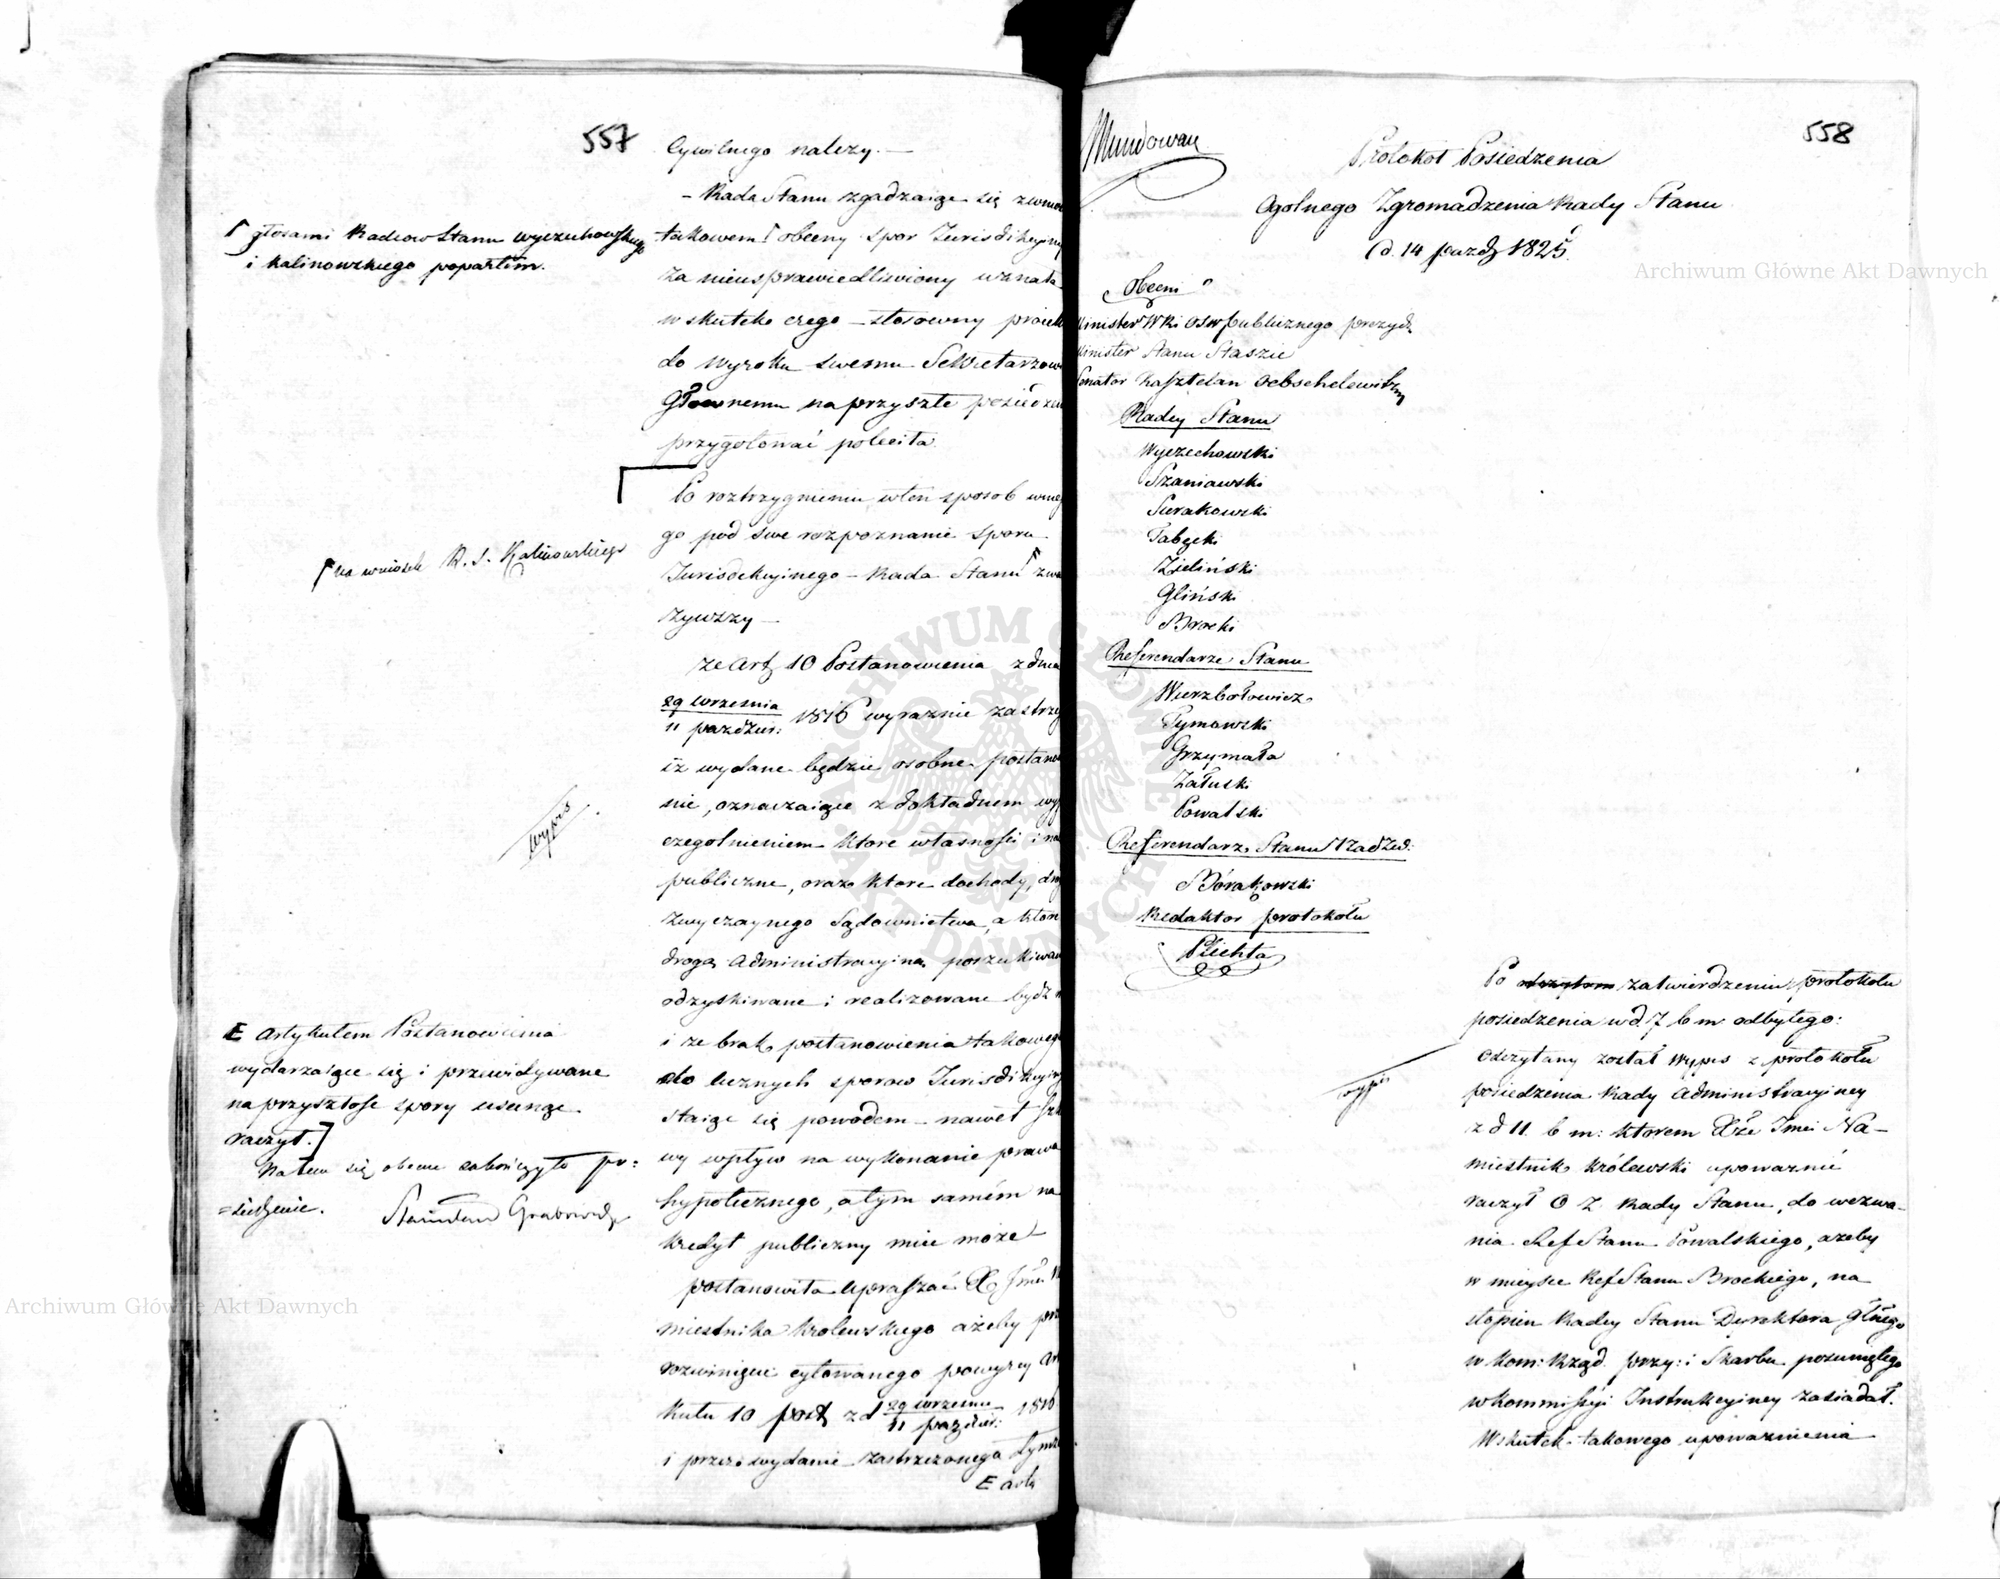 557
Cywilnego należy. —
– Rada Stanu zgadzaiąc się z wnio
takowem obecny spor Jurisdikcyiny
za nieusprawiedliwiony uznała
w skutek czego – stosowny proiekt
do Wyroku swemu Sekretarzowi
Głownemu na przyszłe posiedzen
przygotować poleciła.
głosami Radcow Stanu Wyczechowskiego
i Kalinowskiego popartem.
Po roztrzygnieniu w ten sposob wnie
go pod swe rozpoznanie sporu
Jurisdikcyinego – Rada Stanu zwa
żywszy –
na wniosek R. S. Kalinowskiego
że Art. 10 Postanowienia z dnia
29 września
11 paździer: 1816 wyraznie zastrzeg
iż wydane będzie osobne postano
nie, oznaczaiące z dokładnem wyy
czegolnieniem ktore własności i na
publiczne, oraz ktore dochody, dro
zwyczaynego Sądownictwa, a ktore
drogą Administracyiną poszukiwan
odzyskiwane i realizowane bydź m
i że brak postanowienia takowego
do licznych sporow Jurisdikcyiny
staiąc się powodem – nawet szk
wy wpływ na wykonanie prawa
hypotecznego, a tym samém na
kredyt publiczny mieć może
postanowiła upraszać X. Jmci N
miestnika Krolewskiego ażeby prz
rozwinięcie cytowanego powyżey Ar
kułu 10 post z d 29 września
11 paźdz: 1816
i przez wydanie zastrzeżonego tymże
E arty
wypis
E Artykułem Postanowienia
wydarzaiące się i przewidywane
na przyszłość spory usunąć
raczył.]
Na tem się obecne zakończyło po=
=siedzenie.
Stanisław Grabowski
558
Mundowan
Protokoł Posiedzenia
Ogolnego Zgromadzenia Rady Stanu
d. 14 paźdz 1825.
Obecni
Minister W Ri Osw publicznego prezyd.
Minister Stanu Staszic
Senator Kasztelan Oebschelewitz
Radcy Stanu
Wyczechowski
Szaniawski
Surakowski
Tabęcki
Zieliński
Gliński
Brocki
Referendarze Stanu
Wierzbołowicz
Tymowski
Grzymała
Załuski
Kowalski
Referendarz Stanu Nadzw:
Borakowski
Redaktor protokołu
Plichta
Po zatwierdzeniu protokołu
posiedzenia w d. 7 b m odbytego:
Odczytany został Wypis z protokołu
posiedzenia Rady Administracyiney
z d 11. b m: ktorem Xże Jmci Na-
miestnik Królewski upoważnić
raczył O Z Rady Stanu, do wezwa-
nia Ref Stanu Kowalskiego, ażeby
w mieysce Ref Stanu Brockiego, na
stopień Radcy Stanu Dyrektora Głnego
w Kom: Rząd. przy: i Skarbu posuniętego
w Kommissyi Instrukcyiney zasiadał.
W skutek takowego upoważnienia
wypis
Archiwum Główne Akt Dawnych
Archiwum Główne Akt Dawnych
ARCHIWUM GŁÓWNE AKT DAWNYCH